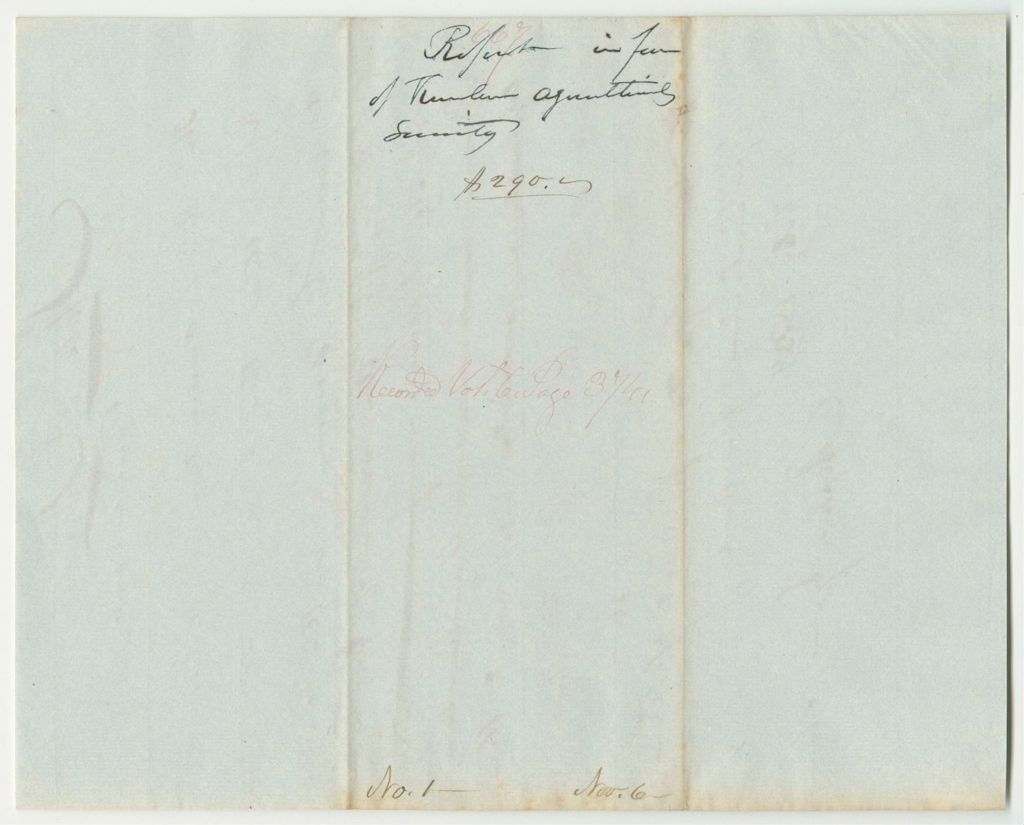 Report in fav
of Kennebec Agricultural
Society
$290.
Recorded Vol. Page 371
No. 1 Nov. 6